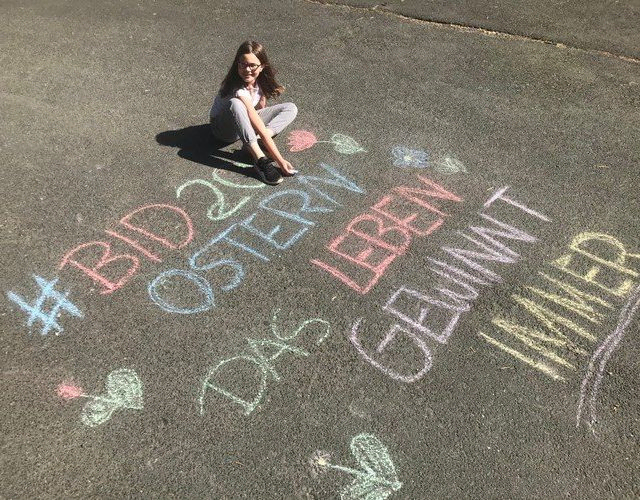 #BID20
OSTERN
DAS LEBEN
GEWINNT
IMMER